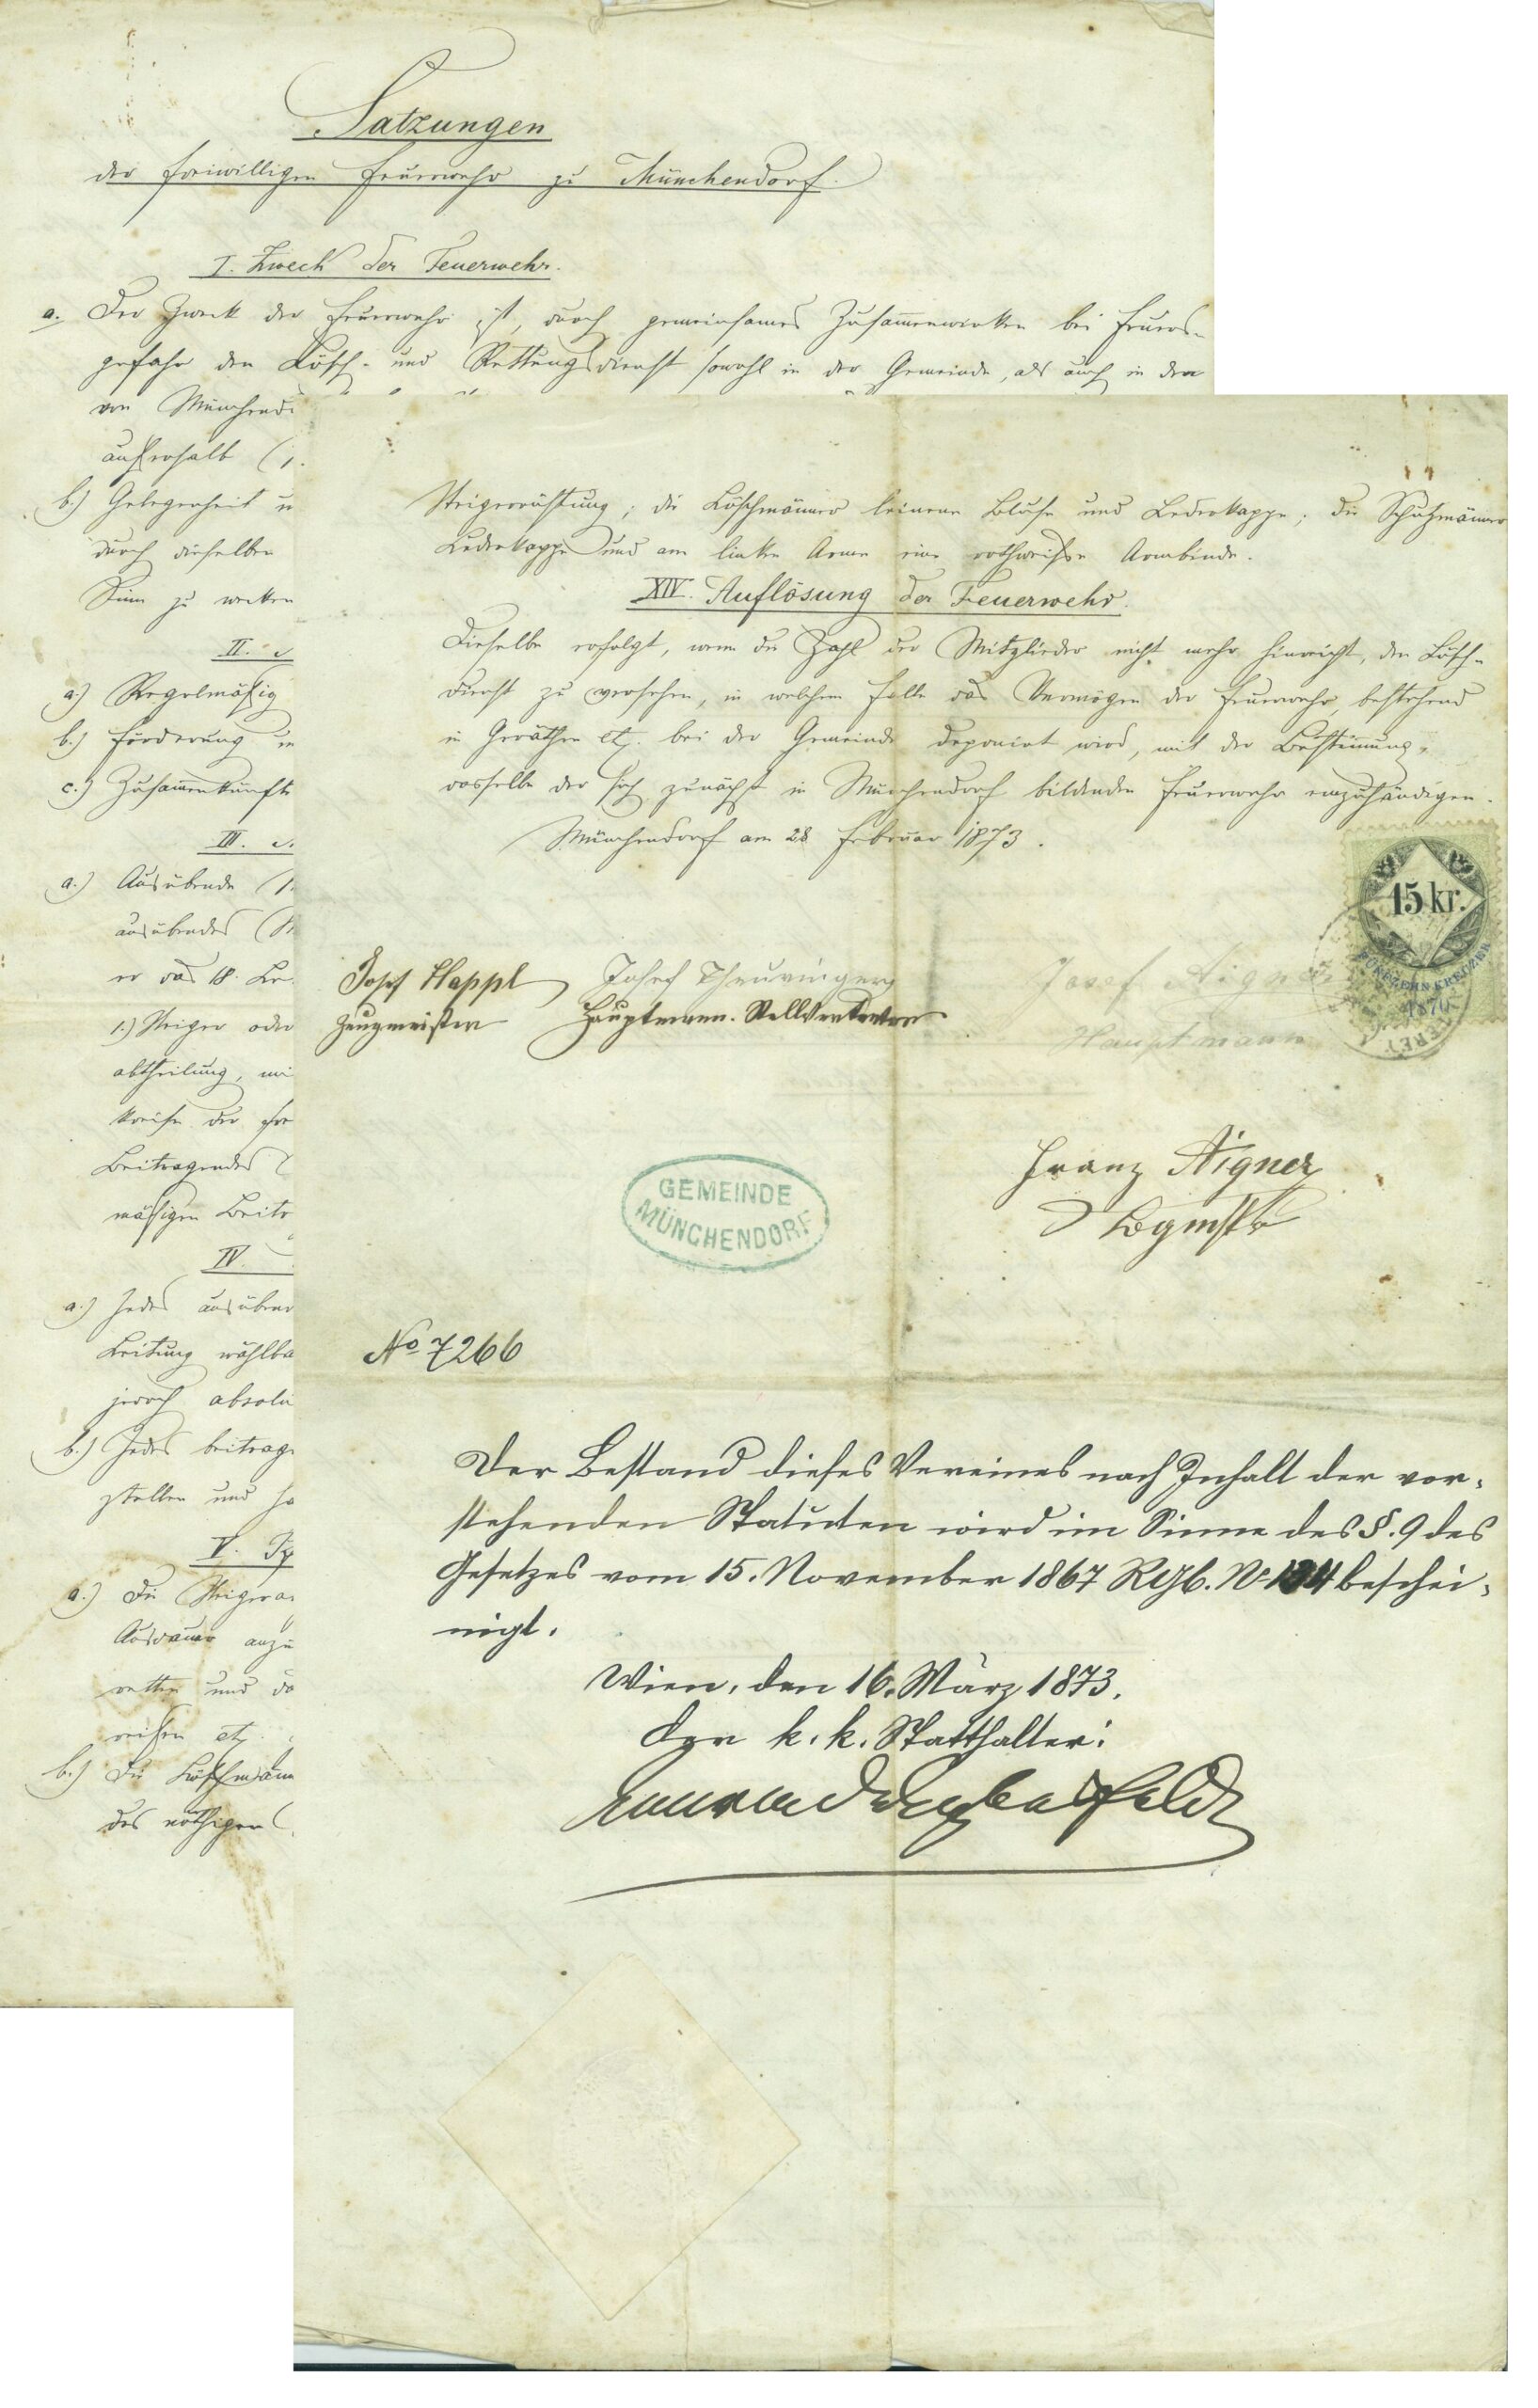 Satzungen
der freiwilligen Feuerwehr zu Münchendorf.
I. Zweck der Feuerwehr.
a. Der Zweck der Feuerwehr ist, durch gemeinsames Zusammenwirken bei Feuers-
gefahr den Lösch- und Rettungsdienst sowohl in der Gemeinde, als auch in den
von Münchend
außerhalb
b.) Gelegenheit
durch dieselben
Sinn zu wecken
II.
a.) Regelmäßig
b.) Förderung
c.) Zusammenkünfte
III.
a.) Ausübende
ausübendes
er das 18. Le
1.) Steiger oder
abtheilung,
Beitragendes
mäßigen Beitr
IV.
a.) Jedes ausüben
Leitung wählba
jedoch absolu
b.) Jedes beitrage
stellen und
V.
a.) Die Steiger
Ausdauer anzu
retten und
b.) Die Löschmänn
des nöthigen
Steigerrüstung; die Löschmänner leinene Blouse und Lederkappe; die Schutzmänner
Lederkappe und am linken Arme eine rothweiße Armbinde.
XIV. Auflösung der Feuerwehr.
Dieselbe erfolgt, wenn die Zahl der Mitglieder nicht mehr hinreicht, den Lösch-
dienst zu versehen, in welchem Falle das Vermögen der Feuerwehr, bestehend
in Geräthen etz. bei der Gemeinde deponirt wird, mit der Bestimmung,
dasselbe der sich zunächst in Münchendorf bildenden Feuerwehr einzuhändigen.
Münchendorf am 28 Februar 1873.
15 kr.
FÜNFZEHN KREUZER
1870
Josef Happl
Zeugmeister
Josef Theuringer
Hauptmann-Stellvertreter
Josef Aigner
Hauptmann
GEMEINDE
MÜNCHENDORF
Franz Aigner
No 7266
Der Bestand dieses Vereines nach Inhalt der vor-
stehenden Statuten wird im Sinne des §. 9 des
Gesetzes vom 15. November 1867 RGB. No 134 beschei-
nigt.
Wien, den 16. März 1873.
Der k. k. Statthalter: